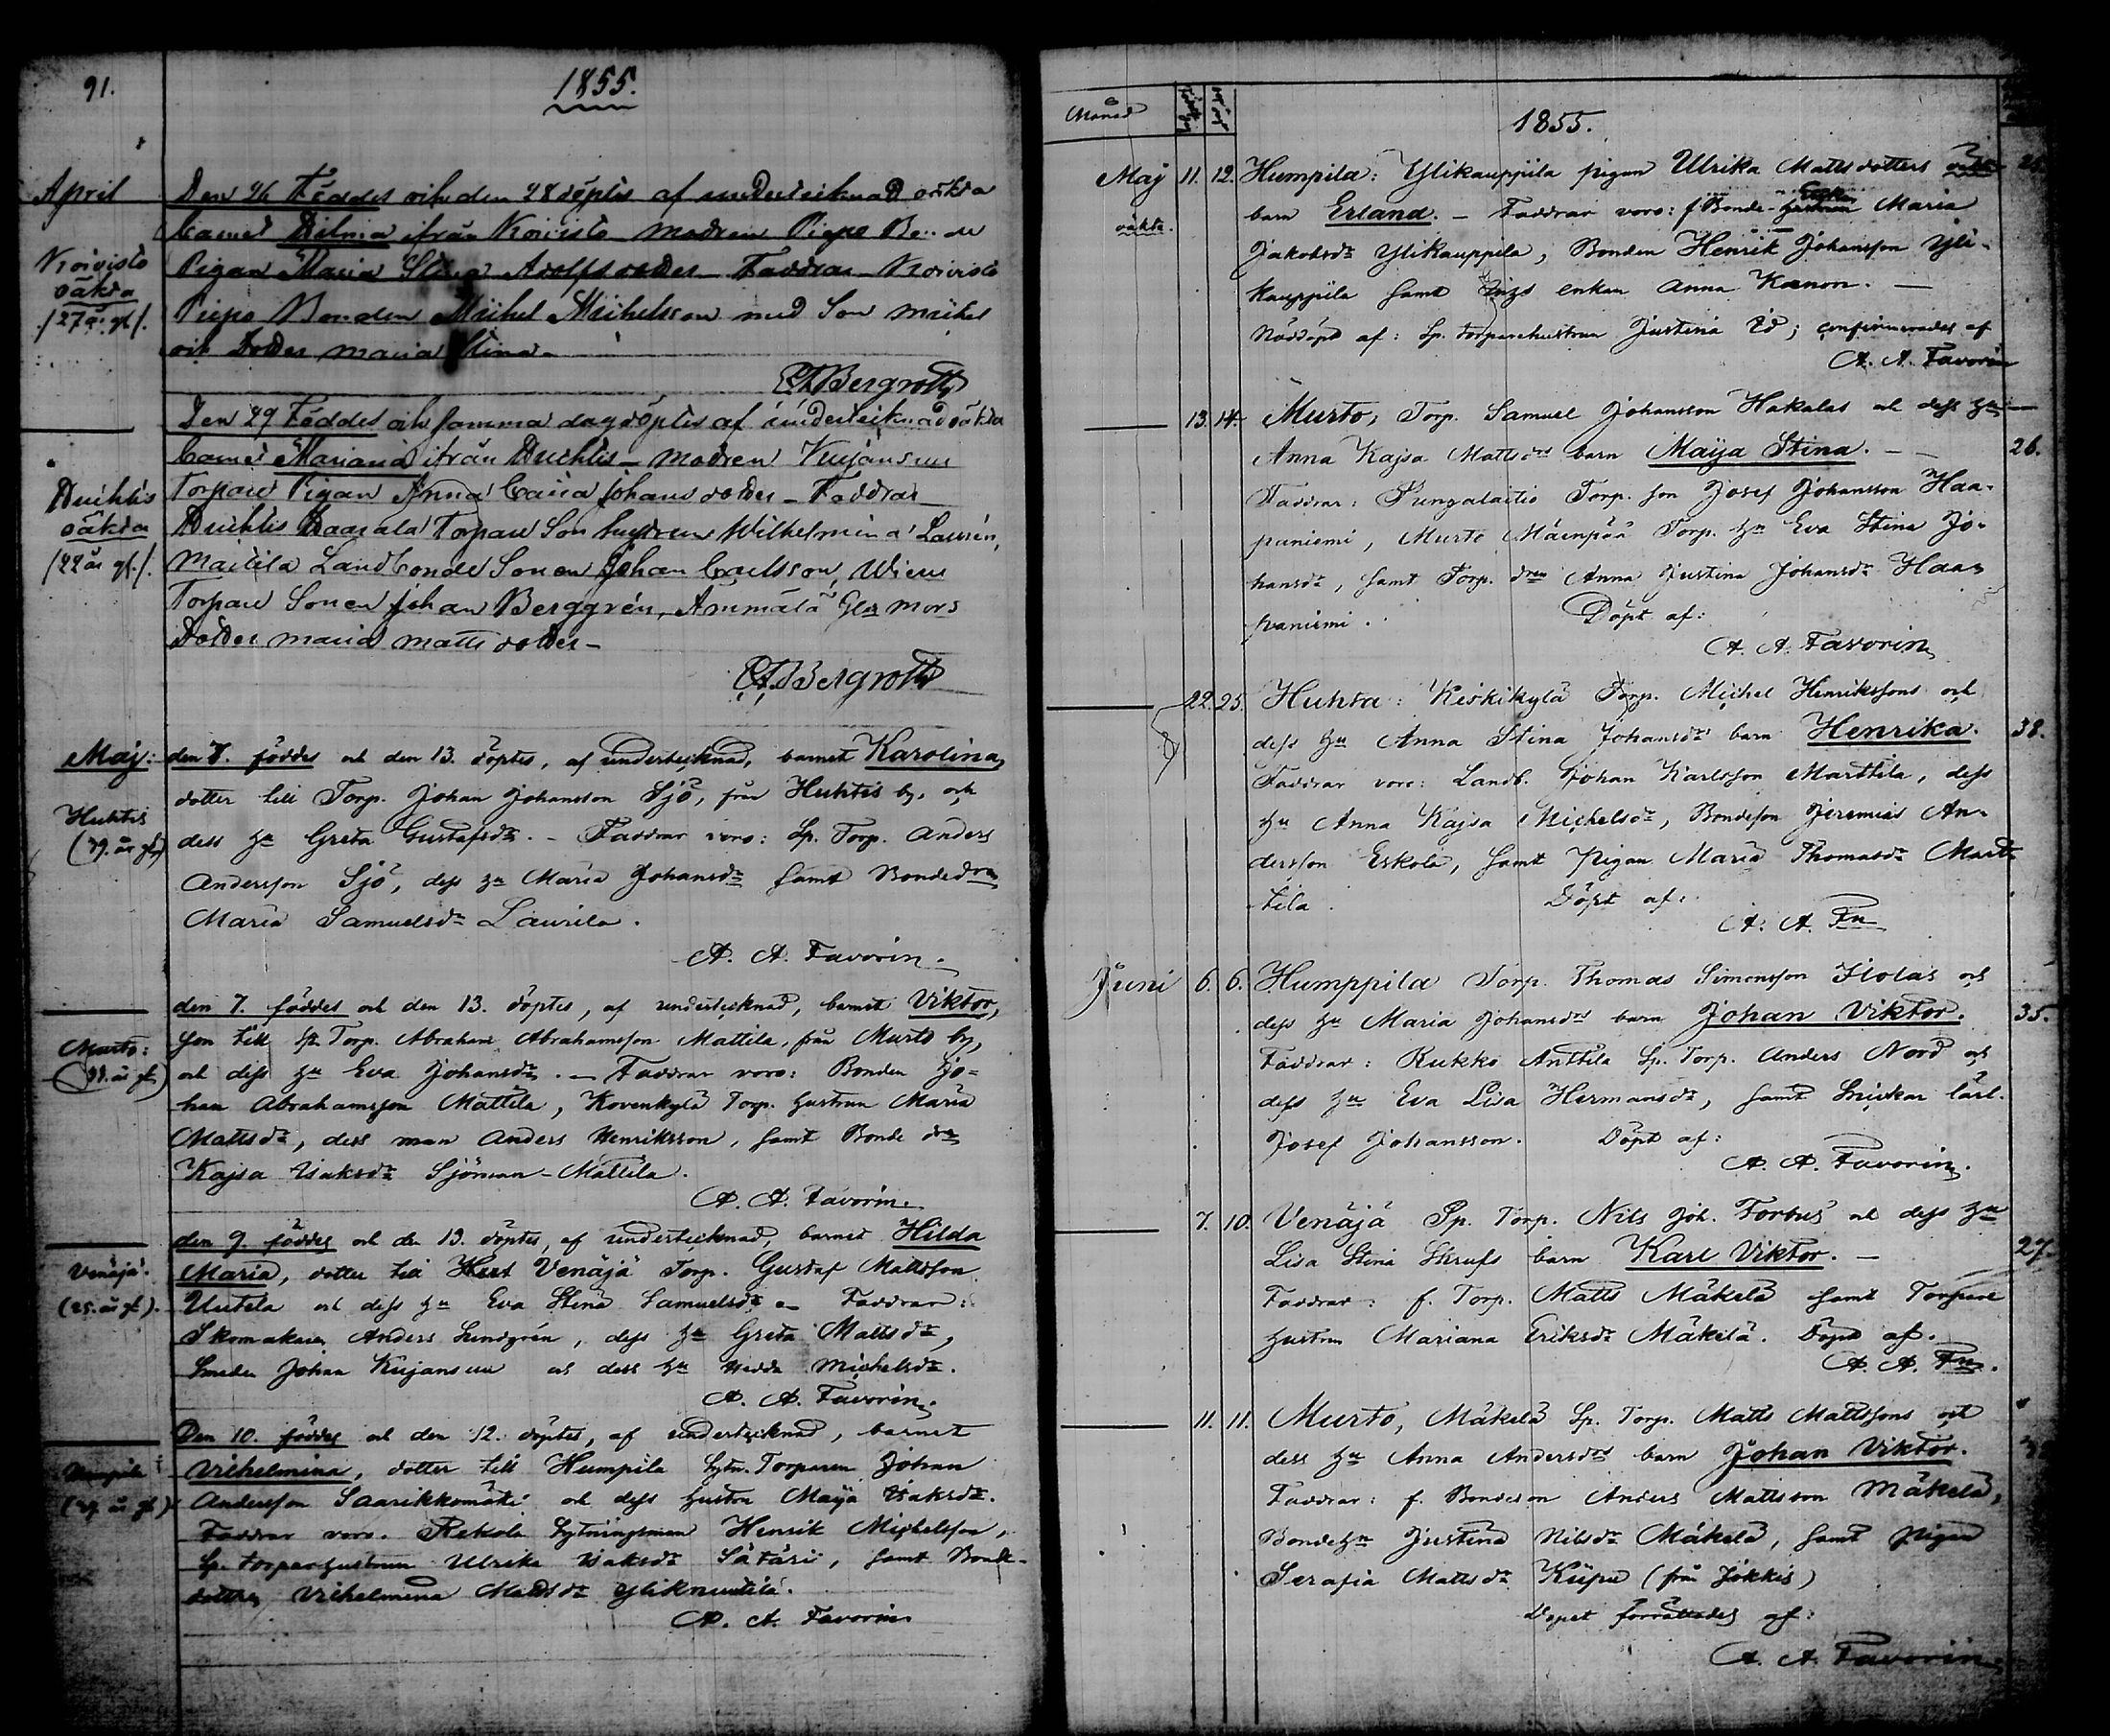 91.
1855.
April
Den 26 Föddes och den 28 döptes af undertecknad oäkta
barnet Wilmia ifrån Koivisto modren Piepo
Koivisto
oäkta
/27 år gl/.
Pigan Maria Stina Adolfsdotter Faddrar Koivisto
Piepo Bonden Michel Michelsson med Son Michel
och Dotter Maria Stina
Bergroth
Den 29 Föddes och samma dag döptes af undertecknad oäkta
barnet Mariana ifrån Huchtis modren Kujansuu
Huchtis
oäkta
/22 år gl./.
Torpare Pigan Anna Caisa Johans dotter – Faddrar
Huchtis Torpare Son hustrun Wilhelmina Laurén,
Landbonde Sonen Johan Carlsson,
Torpare Sonen Johan Berggrén,
Dotter Maria Matts dotter –
Bergroth
Maj:
den 7. föddes och den 13. döptes, af undertecknad, barnet Karolina,
dotter till Torp. Johan Johansson Sjö, från Huhtis by, och
Huhtis
(39. år gl.)
dess hu Greta Gustafsdr. – Faddrar voro: Sp. Torp. Anders
Andersson Sjö, dess hu Maria Johansdr samt Bondedrn
Maria Samuelsdr Laurila.
A. A. Favorin.
den 7. föddes och den 13. döptes, af undertecknad, barnet Viktor,
son till Sp. Torp. Abraham Abrahamsson Mattila, från Murto by,
Murto:
och dess hu Eva Johansdr. – Faddrar voro: Bonden Jo-
han Abrahamsson Mattila, Kovenkylä Torp. hustrun Maria
Mattsdr, dess man Anders Henriksson, samt Bonde drn
Kajsa Isaksdr Sjöman-Mattila.
A. A. Favorin.
den 9. föddes och den 13. döptes, af undertecknad, barnet Hilda
Venäjä:
(25. år gl.).
Maria, dotter till Venäjä Torp. Gustaf Mattsson
Uutela och dess hu Eva Stina Samuelsdr – Faddrar:
Skomakaren Anders Lundgrén, dess hu Greta Mattsdr,
Smeden Johan Kujansuu och dess hu Hedda Michelsdr.
A. A. Favorin.
Den 10. föddes och den 12. döptes, af undertecknad, barnet
Humpila:
Vilhelmina, dotter till Humpila Sytn. Torparen Johan
Andersson Saarikkomäki och dess hustru Maija Isaksdr.
Faddrar voro. Rekola Sytningsman Henrik Michelsson,
Sp. torparhustrun Ulrika Isaksdr Sätäri, samt Bonde-
dottren Vilhelmina Mattsdr Yliknuutila.
A. A. Favorin
Månad
1855.
Maj 11. 12. Humpila: Ylikauppila pigan Ulrika Mattsdotters oäkta 26.
oäkta.
barn Erland. – Faddrar voro: f. Bonde-hustrun Maria
Jakobsdr Ylikauppila, Bonden Henrik Johansson Yli-
kauppila samt enkan Anna Kanon. –
Nöddöpt af: Sp. torparehustrun Justina Id; confirmerades af
A. A. Favorin
13. 14. Murto, Torp. Samuel Johansson Hakalas och dess hu
Anna Kajsa Mattsdrs barn Maija Stina. – 26.
Faddrar: Pungalaitio Torp. son Josef Johansson Haa-
paniemi, Murto Mäenpää Torp. hu Eva Stina Jo-
hansdr, samt Torp. drn Anna Justina Johansdr Haa-
paniemi. Döpt af:
A. A. Favorin
22. 25. Huhta: Keskikylä Torp. Michel Henrikssons och
dess hu Anna Stina Johansdrs barn Henrika. 38.
Faddrar voro: Landb. Johan Karlsson Marttila, dess
hu Anna Kajsa Michelsdr, Bondeson Jeremias An-
dersson Eskola, samt pigan Maria Thomasdr Mart-
tila. Döpt af:
A. A. Fn
Juni 6. 6. Humppila Torp. Thomas Simonsson Ilolas och
dess hu Maria Johansdrs barn Johan Viktor. 35.
Faddrar: Rukko Anttila Sp. Torp. Anders Nord och
dess hu Eva Lisa Hermansdr, samt Snickar lärl.
Josef Johansson. Döpt af:
A. A. Favorin.
7. 10. Venäjä Sp. Torp. Nils Joh. Forbus och dess hu
Lisa Stina Skrufs barn Karl Viktor. – 27.
Faddrar: f. Torp. Matts Mäkelä samt Torpare
hustrun Mariana Eriksdr Mäkelä. Döpt af.
A. A. Fn.
11. 11. Murto, Mäkelä Sp. Torp. Matts Mattssons och
dess hu Anna Andersdrs barn Johan Viktor.
Faddrar: f. Bondeson Anders Mattsson Mäkelä,
Bondehu Justina Nilsdr Mäkelä, samt pigan
Serafia Mattsdr Kiipu (från Jokkis)
Dopet förrättades af:
A. A. Favorin